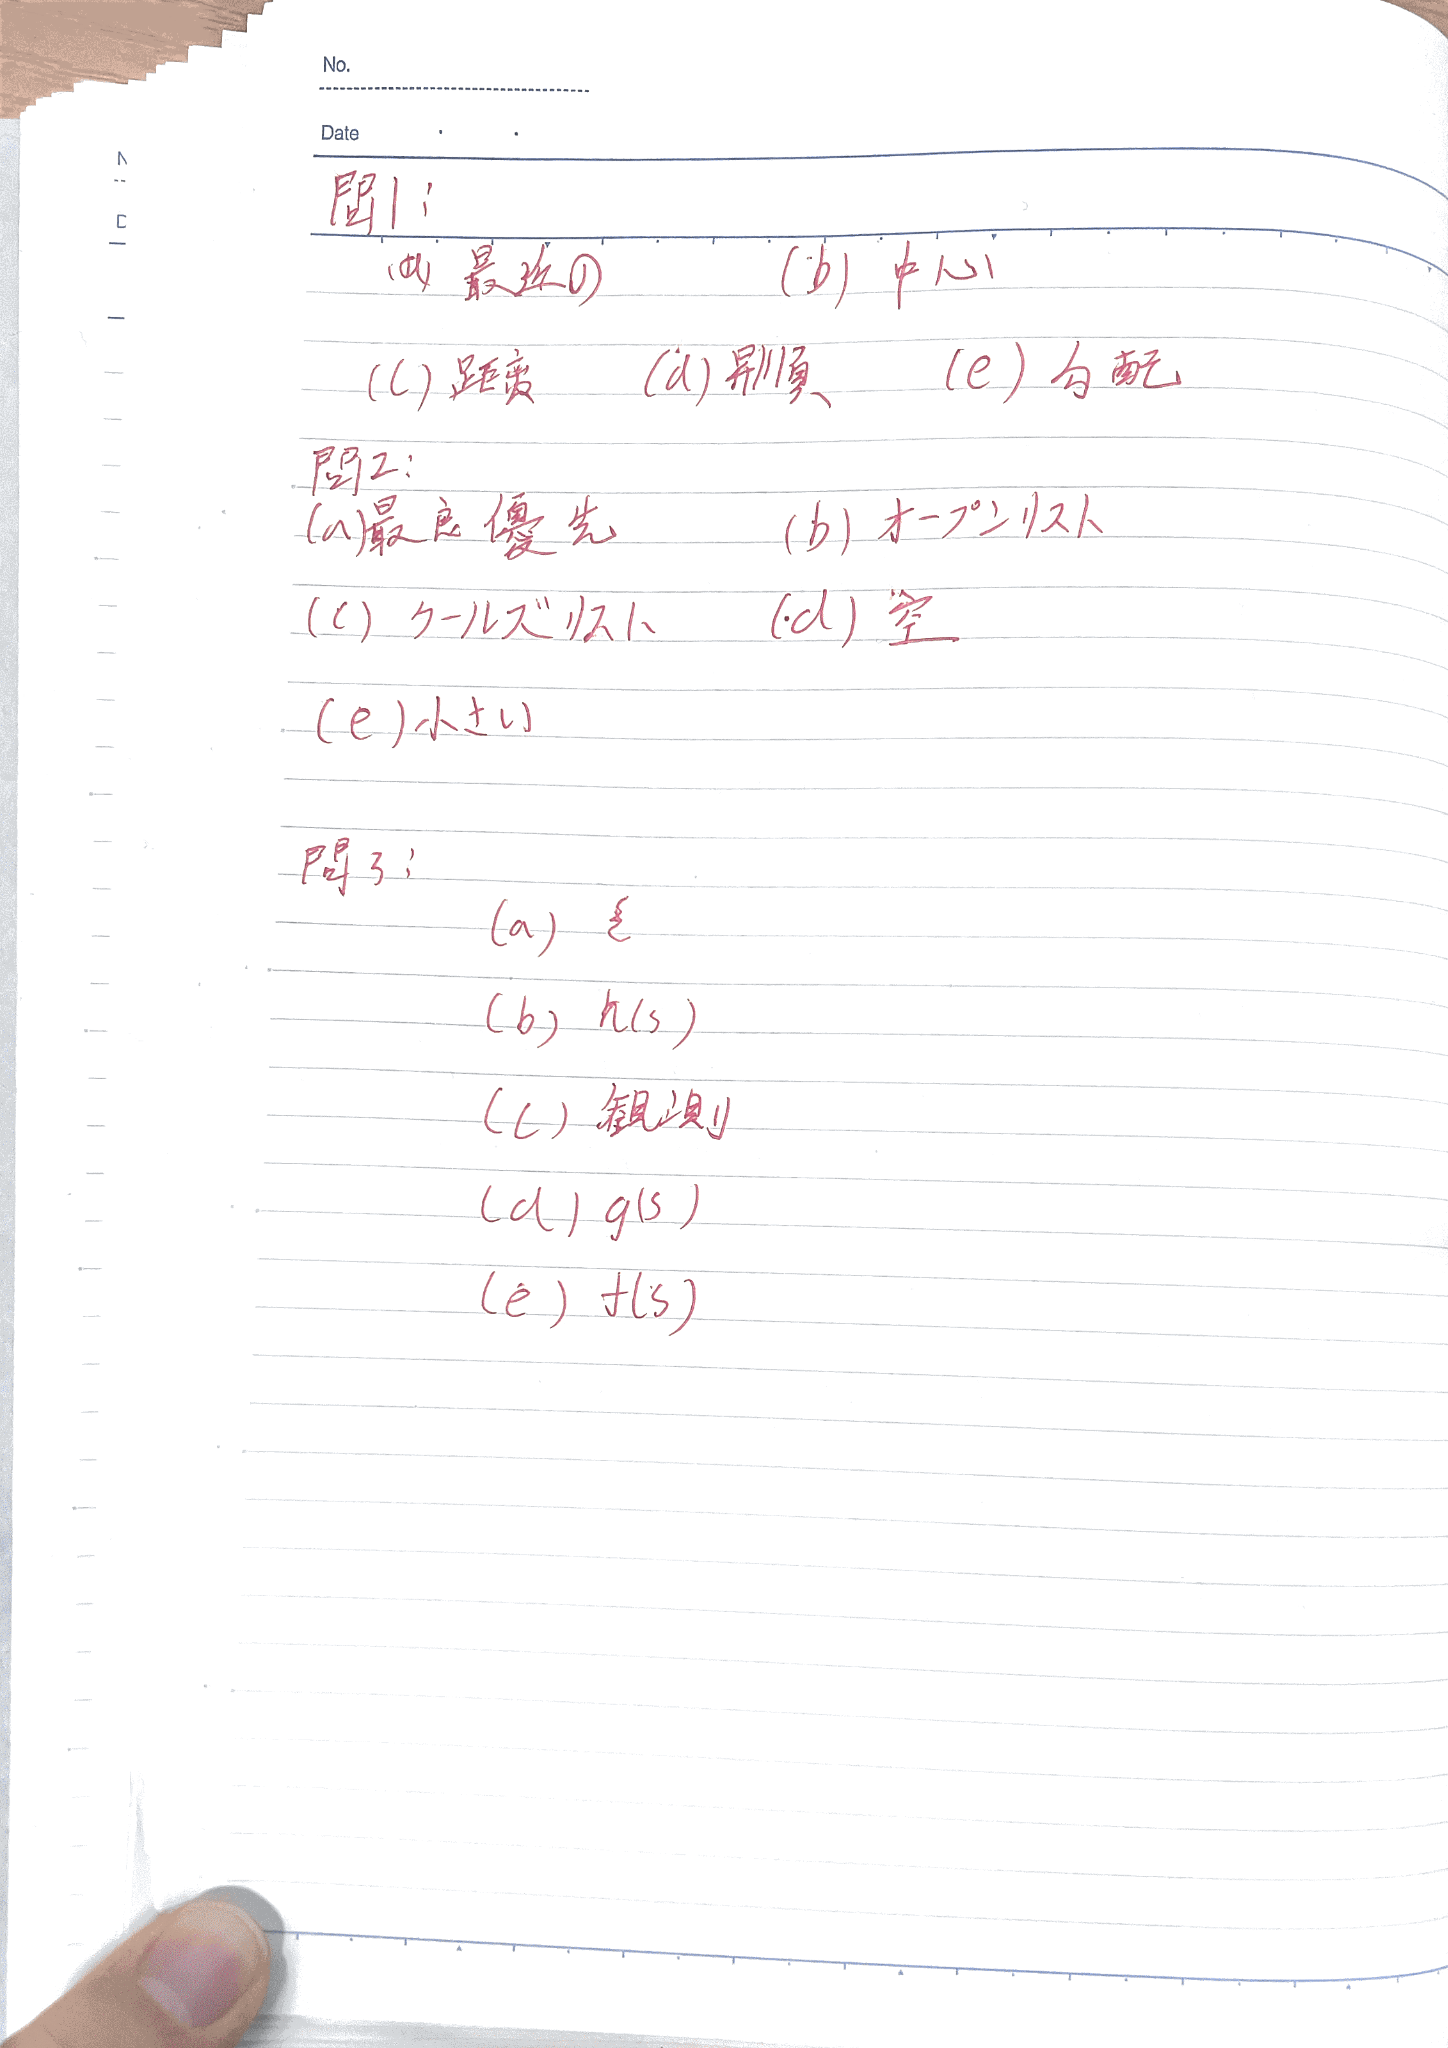 No.
Date
問1:
(a) 最近の (b) 中心
(c) 距離 (d) 昇順 (e) 勾配
問2:
(a) 最良優先 (b) オープンリスト
(c) クールズリスト (d) 空
(e) 小さい
問3:
(a) ξ
(b) h(s)
(c) 観測
(d) g(s)
(e) f(s)